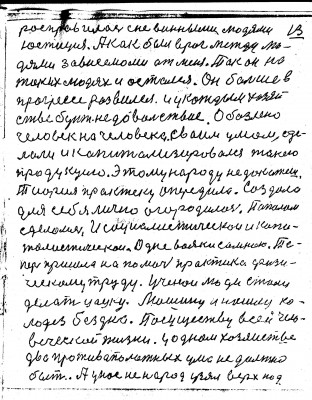 расправилась с не винными людями 13
юстиция. А как был враг между лю-
дями зависемоми от мея. Так он на
таких людях и остался. Он больше в
процессе развился. и у каждым хозяй
стве бунт недовольствие. Обозлено
человек на человека, своим умом, сде-
лали и капитализировался такою
продукцию. Этому народу не дохотки.
Тиория практику опередила. Создала
для себя лично огородилась. Потолом
сделолась, И социалистической и капи-
толистической. Одне волки самною. Те-
пер пришла на помоч практика физи-
ческому труду. Ученои люди стали
делат чашку. Машину и нашу ко-
лодез бездна. По существу всей чело-
веческой жизни. У одном хозяистве
два противаположных ума не должно
быт. А умное не народ узял верх над